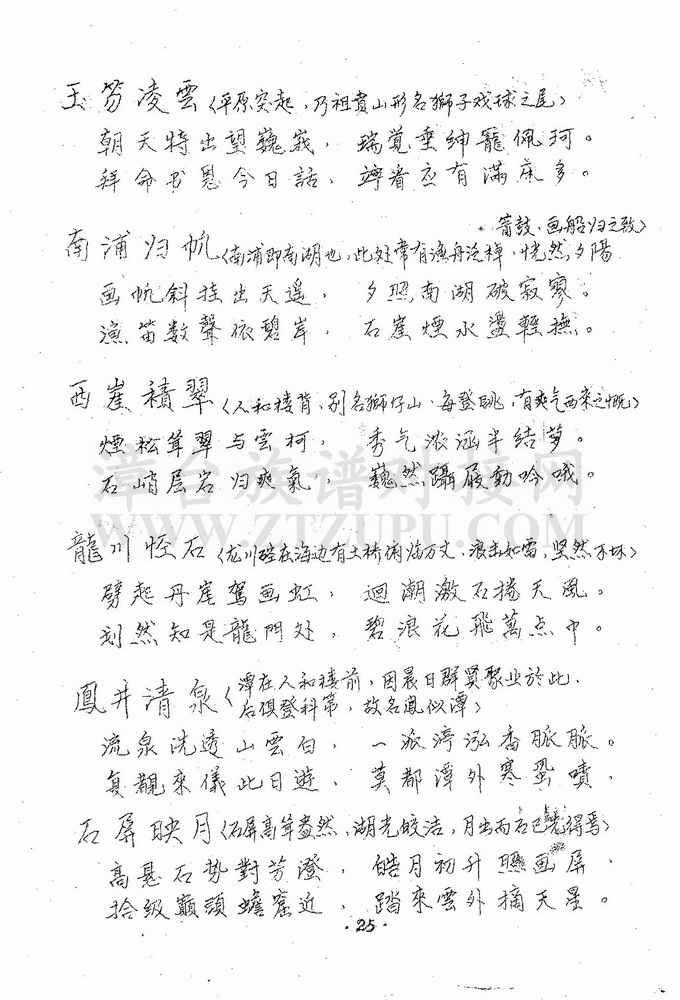 玉笏凌雲〈平原突起，乃祖贲山形名獅子戏球之尾〉
朝天特出望巍峩，瑞覚垂紳寵佩珂。
拜命书思今日話，竚看应有滿床多。
箫鼓、画船归之致〉
南浦归帆〈南浦即南湖也，此处常有漁舟泛棹，恍然夕陽
画帆斜挂出天遥，夕照南湖破寂寥。
漁笛数聲依碧岸，石崖煙水盪輕橈。
西崖積翠〈人和楼背、别名獅仔山、每登眺，有爽气西来之慨〉
煙松耸翠与雲柯，秀气浓涵半结萝。
石峭层岩归爽氣，巍然躡屐動吟哦。
龍川怪石〈龙川磴在海边有土桥俯临万丈，浪击如雷，坚然不坏〉
劈起丹崖駕画虹，迴潮激石捲天風。
划然知是龍門处，碧浪花飛萬点中。
鳳井清泉〈潭在人和楼前，因晨日群贤聚业於此，
后俱登科第，故名鳳似潭〉
流泉洗透山雲白，一派渟泓香脈脈。
复覩來儀此日遊，莫都潭外寒蛩嘖，
石屏映月〈石屏高耸盎然、湖光皎洁，月出而石已先得焉〉
高悬石势對芳澄，皓月初升照画屏，
拾级巅頭蟾窟近，踏來雲外摘天星。
·25·
漳台族谱对接网
WWW.ZTZUPU.COM